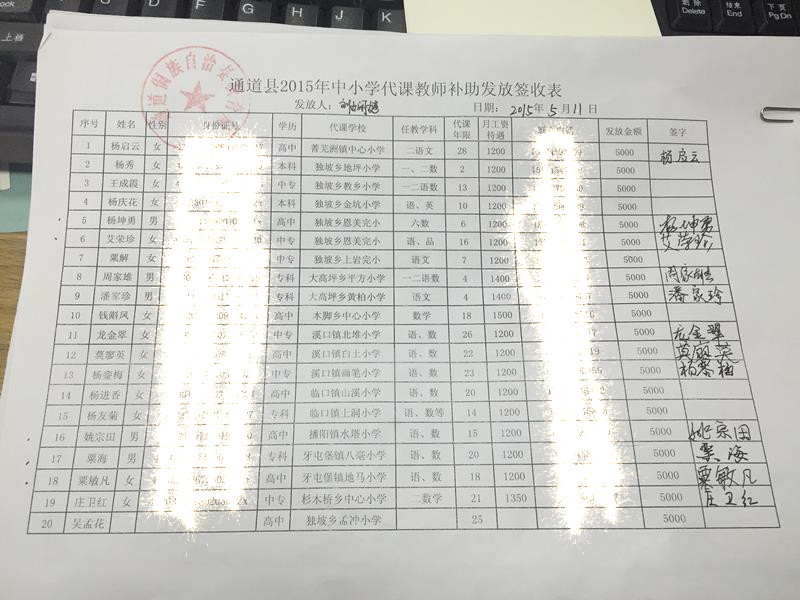 上档
F G H J K
Delete
结束 End
下页 Pg Dn
通道县2015年中小学代课教师补助发放签收表
发放人： 日期： 2015年 5月 11日
序号 姓名 性别 身份证号 学历 代课学校 任教学科 代课年限 月工资待遇 发放金额 签字
1 杨启云 女 高中 菁芜洲镇中心小学 二语文 28 1200 5000 杨启云
2 杨秀 女 本科 独坡乡地坪小学 一、二数 2 1200 5000
3 王成霞 女 中专 独坡乡教乡小学 一二语数 13 1200 5000
4 杨庆花 女 本科 独坡乡金坑小学 语、英 10 1200 5000
5 杨坤勇 男 高中 独坡乡恩美完小 六数 6 1200 5000 杨坤勇
6 艾荣珍 女 中专 独坡乡恩美完小 语、品 16 1200 5000 艾荣珍
7 粟解 女 中专 独坡乡上岩完小 语文 7 1200 5000
8 周家雄 男 专科 大高坪乡平方小学 一二语数 4 1400 5000 周家雄
9 潘家珍 男 专科 大高坪乡黄柏小学 语文 4 1400 5000 潘家珍
10 钱爵凤 女 高中 木脚乡中心小学 数学 18 1500 5000
11 龙金翠 女 中专 溪口镇北堆小学 语、数 26 1200 5000 龙金翠
12 莫廖英 女 高中 溪口镇白土小学 语、数 22 1200 5000 莫廖英
13 杨銮梅 女 中专 溪口镇画笔小学 语、数 23 1200 5000
14 杨进香 女 高中 临口镇山溪小学 语、数 20 1200 5000
15 杨友菊 女 专科 临口镇上洞小学 语、数等 14 1200 5000
16 姚宗田 男 高中 播阳镇水塔小学 语、数 15 1200 5000 姚宗田
17 粟海 男 专科 牙屯堡镇八毫小学 语、数 20 1200 5000 粟海
18 粟敏凡 女 高中 牙屯堡镇地马小学 语、数 18 1200 5000 粟敏凡
19 庄卫红 女 中专 杉木桥乡中心小学 二数学 21 1350 5000 庄卫红
20 吴孟花 高中 独坡乡孟冲小学 25 5000